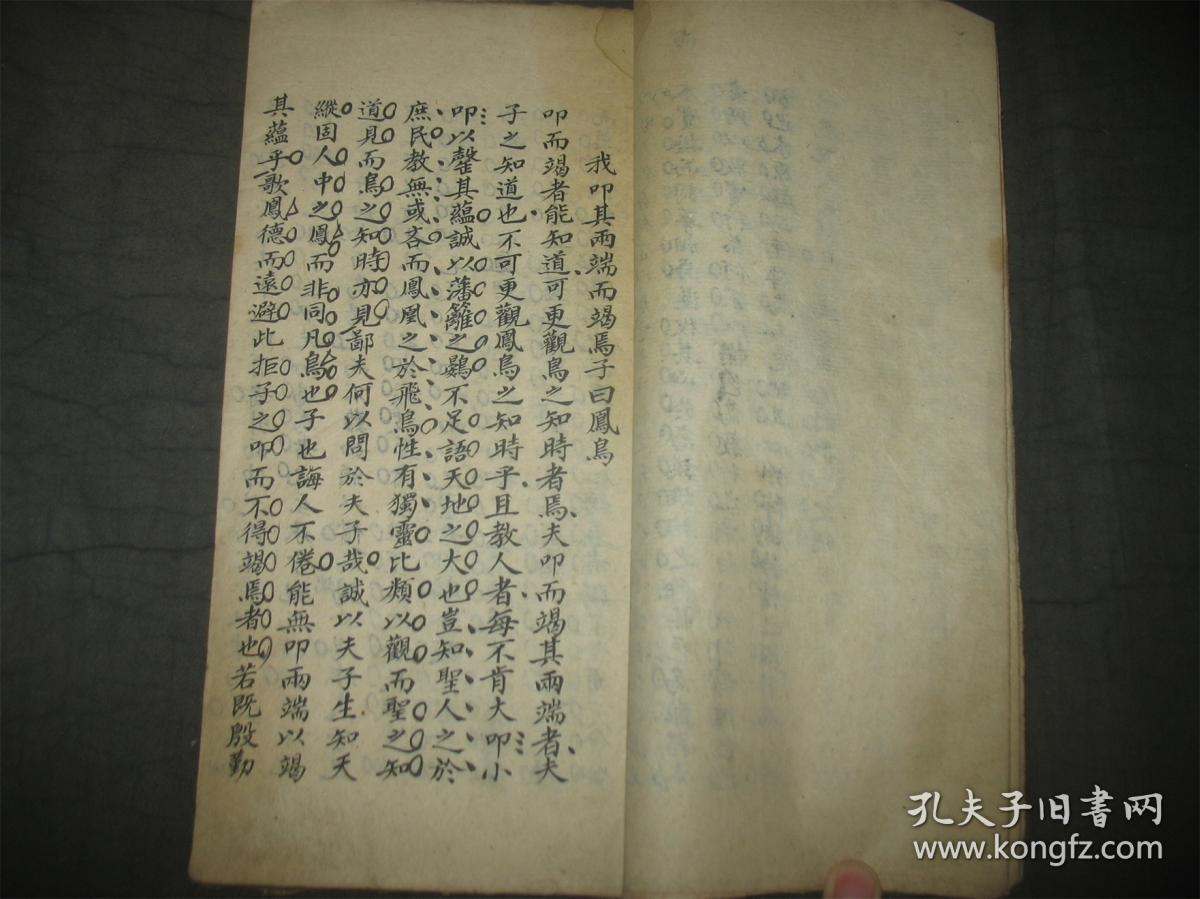 我叩其兩端而竭焉子曰鳳鳥
叩而竭者能知道可更觀鳥之知時者焉夫叩而竭其兩端者夫
子之知道也不可更觀鳳鳥之知時乎且教人者每不肯大叩小
叩以罄其蘊誠以藩籬之鷃不足語天地之大也豈知聖人之於
庶民教無或吝而鳳凰之於飛鳥性有獨靈比類以觀而聖之知
道見而鳥之知時亦見鄙夫何以問於夫子哉誠以夫子生知天
縱固人中之鳳而非同凡鳥也子也誨人不倦能無叩兩端以竭
其蘊乎歌鳳德而遠避此拒子之叩而不得竭焉者也若既殷勤
孔夫子旧书网
www.kongfz.com